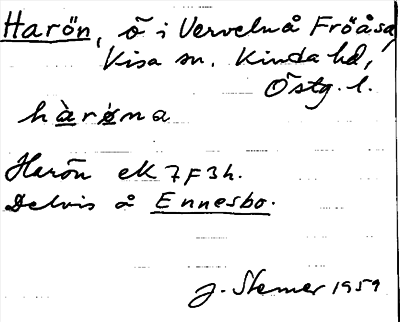 Harön, ö i Vervelnå Fröåsa,
Kisa sn. Kinda hd,
Östg. l.
hàrøna
Harön ek 7F3h.
Delvis å Ennesbo.
J. Stemer 1959